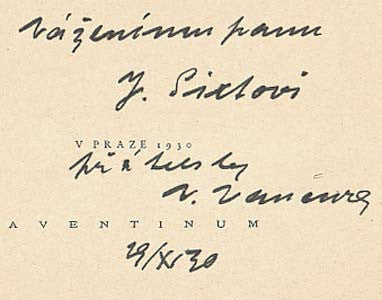 Váženému panu
J. Pixlovi
V PRAZE 1930
přátelsky
V. Vančura
AVENTINUM
29/XI 30